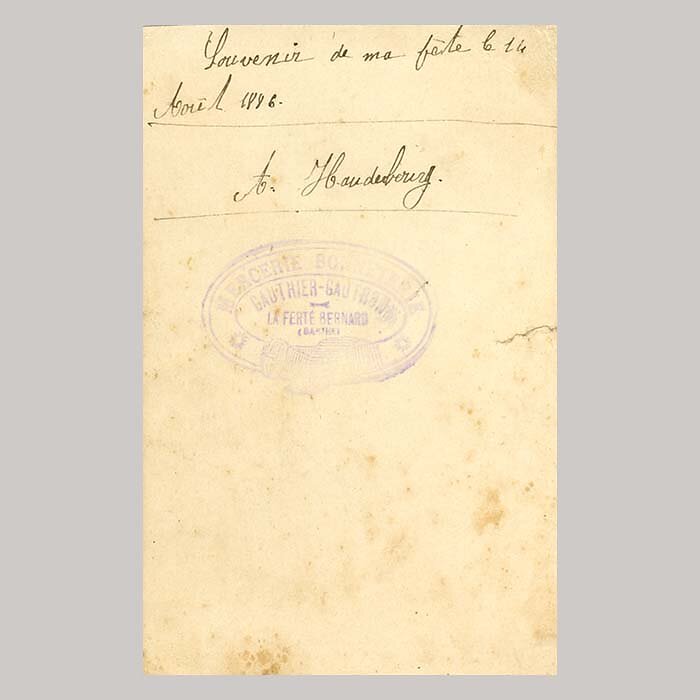 Souvenir de ma fête le 14
Août 1896.
A. Haudebourg.
MERCERIE BONNETERIE
GAUTHIER-GAUTHIER
LA FERTÉ BERNARD
(SARTHE)